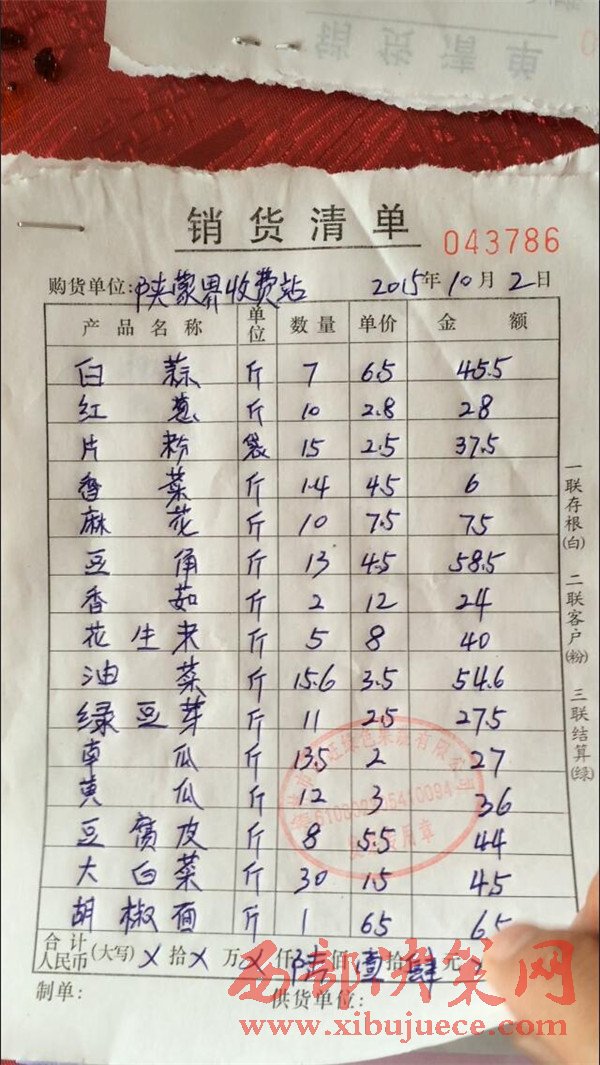 销货清单
销货清单
043786
购货单位:陕蒙界收费站 2015年10月2日
产品名称 单位 数量 单价 金额
白蒜 斤 7 6.5 45.5
红葱 斤 10 2.8 28
片粉 袋 15 2.5 37.5
香菜 斤 1.4 4.5 6
麻花 斤 10 7.5 75
豆角 斤 13 4.5 58.5
香菇 斤 2 12 24
花生米 斤 5 8 40
油菜 斤 15.6 3.5 54.6
绿豆芽 斤 11 2.5 27.5
南瓜 斤 13.5 2 27
黄瓜 斤 12 3 36
豆腐皮 斤 8 5.5 44
大白菜 斤 30 1.5 45
胡椒面 斤 1 65 65
合计人民币(大写) X拾X万X仟陆佰壹拾肆元
制单: 供货单位:
一联存根(白) 二联客户(粉) 三联结算(绿)
西部决策网
www.xibujuece.com